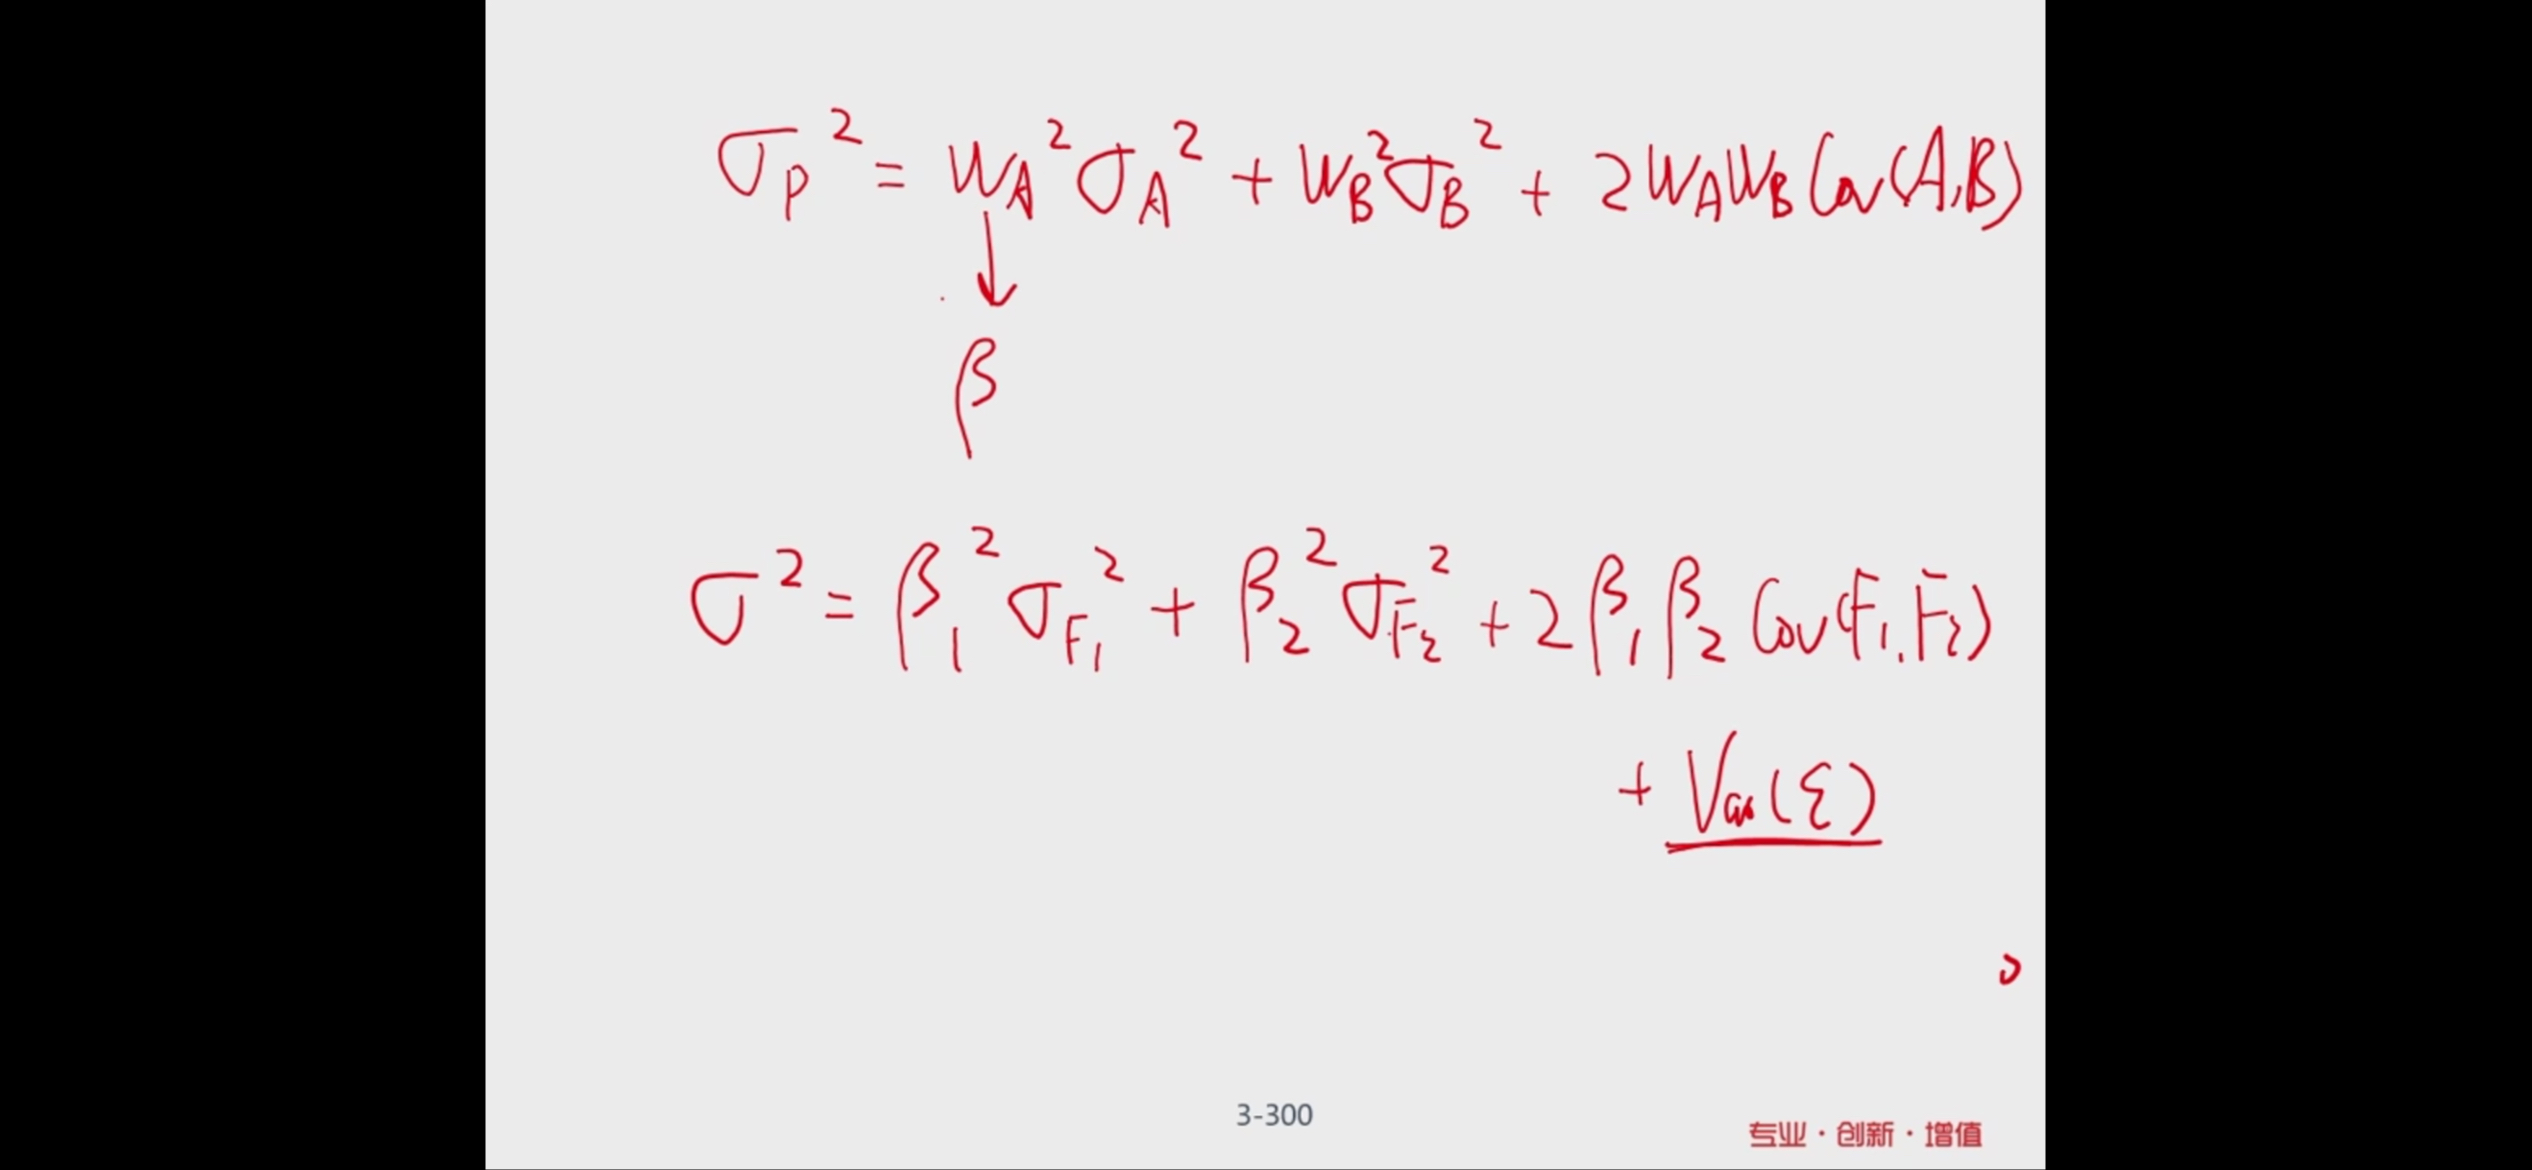 σ_P² = W_A²σ_A² + W_B²σ_B² + 2W_AW_B Cov(A,B)
↓
β
σ² = β₁²σ_F₁² + β₂²σ_F₂² + 2β₁β₂ Cov(F₁.F₂)
+ Var(ε)
3-300
专业·创新·增值